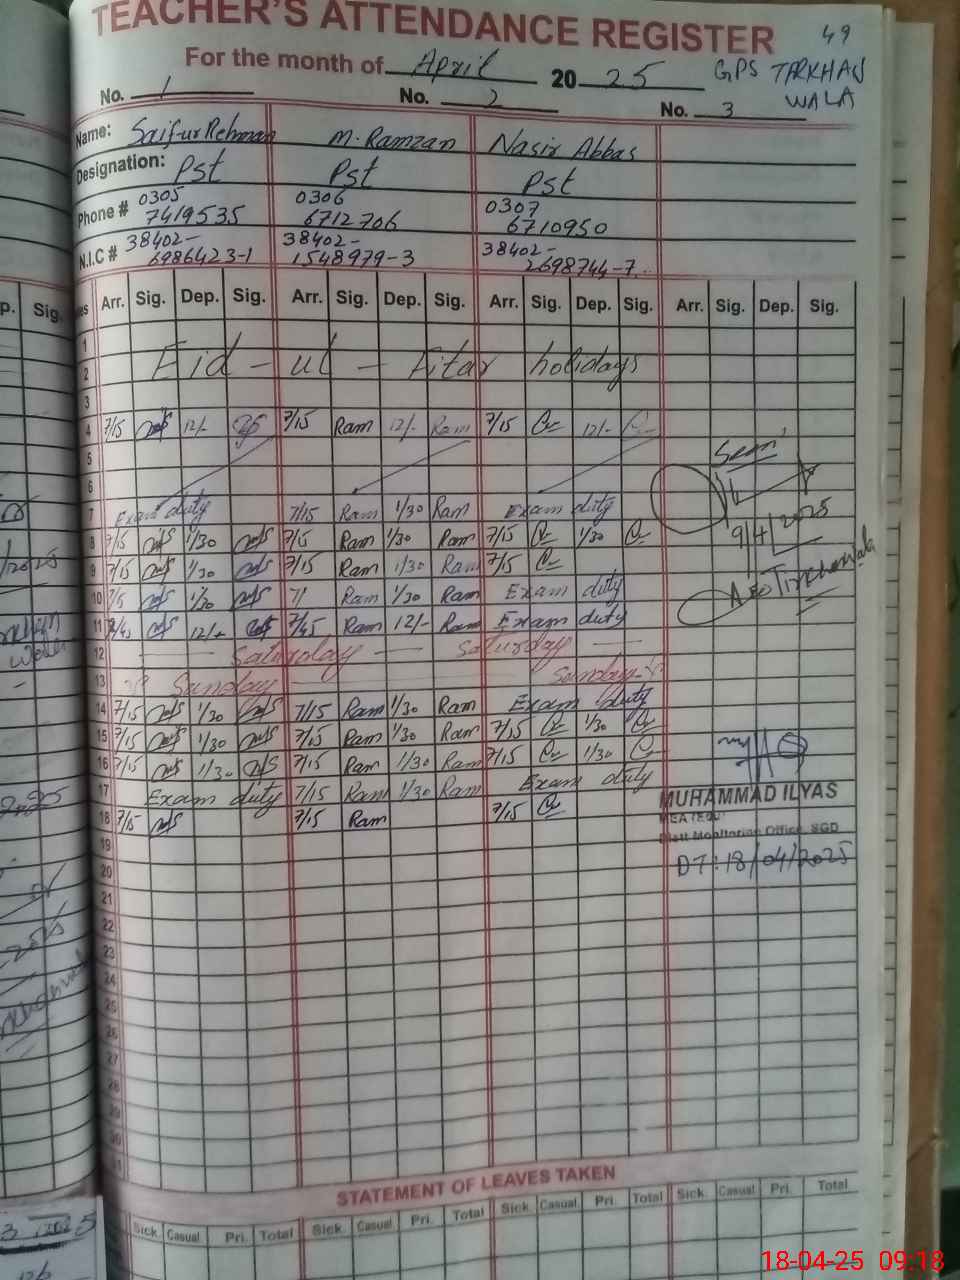 TEACHER'S ATTENDANCE REGISTER 49
For the month of April 20 25 GPS TARKHAN WALA
No. 1 No. 2 No. 3
Name: Saif ur Rehman M. Ramzan Nasir Abbas
Designation: Pst Pst Pst
Phone # 0305 7419535 0306 6712706 0307 6710950
N.I.C # 38402- 6986423-1 38402- 1548979-3 38402- 2698744-7
Arr. Sig. Dep. Sig. Arr. Sig. Dep. Sig. Arr. Sig. Dep. Sig. Arr. Sig. Dep. Sig.
1
2 Eid - ul - Fitar holidays
3
4 7/15 12/- 7/15 Ram 12/- Ram 7/15 12/-
5
6
7 Exam duty 7/15 Ram 1/30 Ram Exam duty
8 7/15 1/30 7/15 Ram 1/30 Ram 7/15 1/30
9 7/15 1/30 7/15 Ram 1/30 Ram 7/15
10 7/5 1/30 7/ Ram 1/30 Ram Exam duty
11 7/45 12/- 7/45 Ram 12/- Ram Exam duty
12 Saturday Saturday
13 Sunday Sunday
14 7/15 1/30 7/15 Ram 1/30 Ram Exam duty
15 7/15 1/30 7/15 Ram 1/30 Ram 7/15 1/30
16 7/15 1/30 7/15 Ram 1/30 Ram 7/15 1/30
17 Exam duty 7/15 Ram 1/30 Ram Exam duty
18 7/15 7/15 Ram 7/15
19
20
21
22
23
24
25
26
27
28
29
30
31
Seen
9/4/2025
AEO Tirkhanwala
MUHAMMAD ILYAS
MEA (EDU)
Distt Monitoring Office, SGD
DT: 18/04/2025
STATEMENT OF LEAVES TAKEN
Sick Casual Pri. Total Sick. Casual Pri. Total Sick. Casual Pri. Total Sick. Casual Pri. Total
18-04-25 09:18